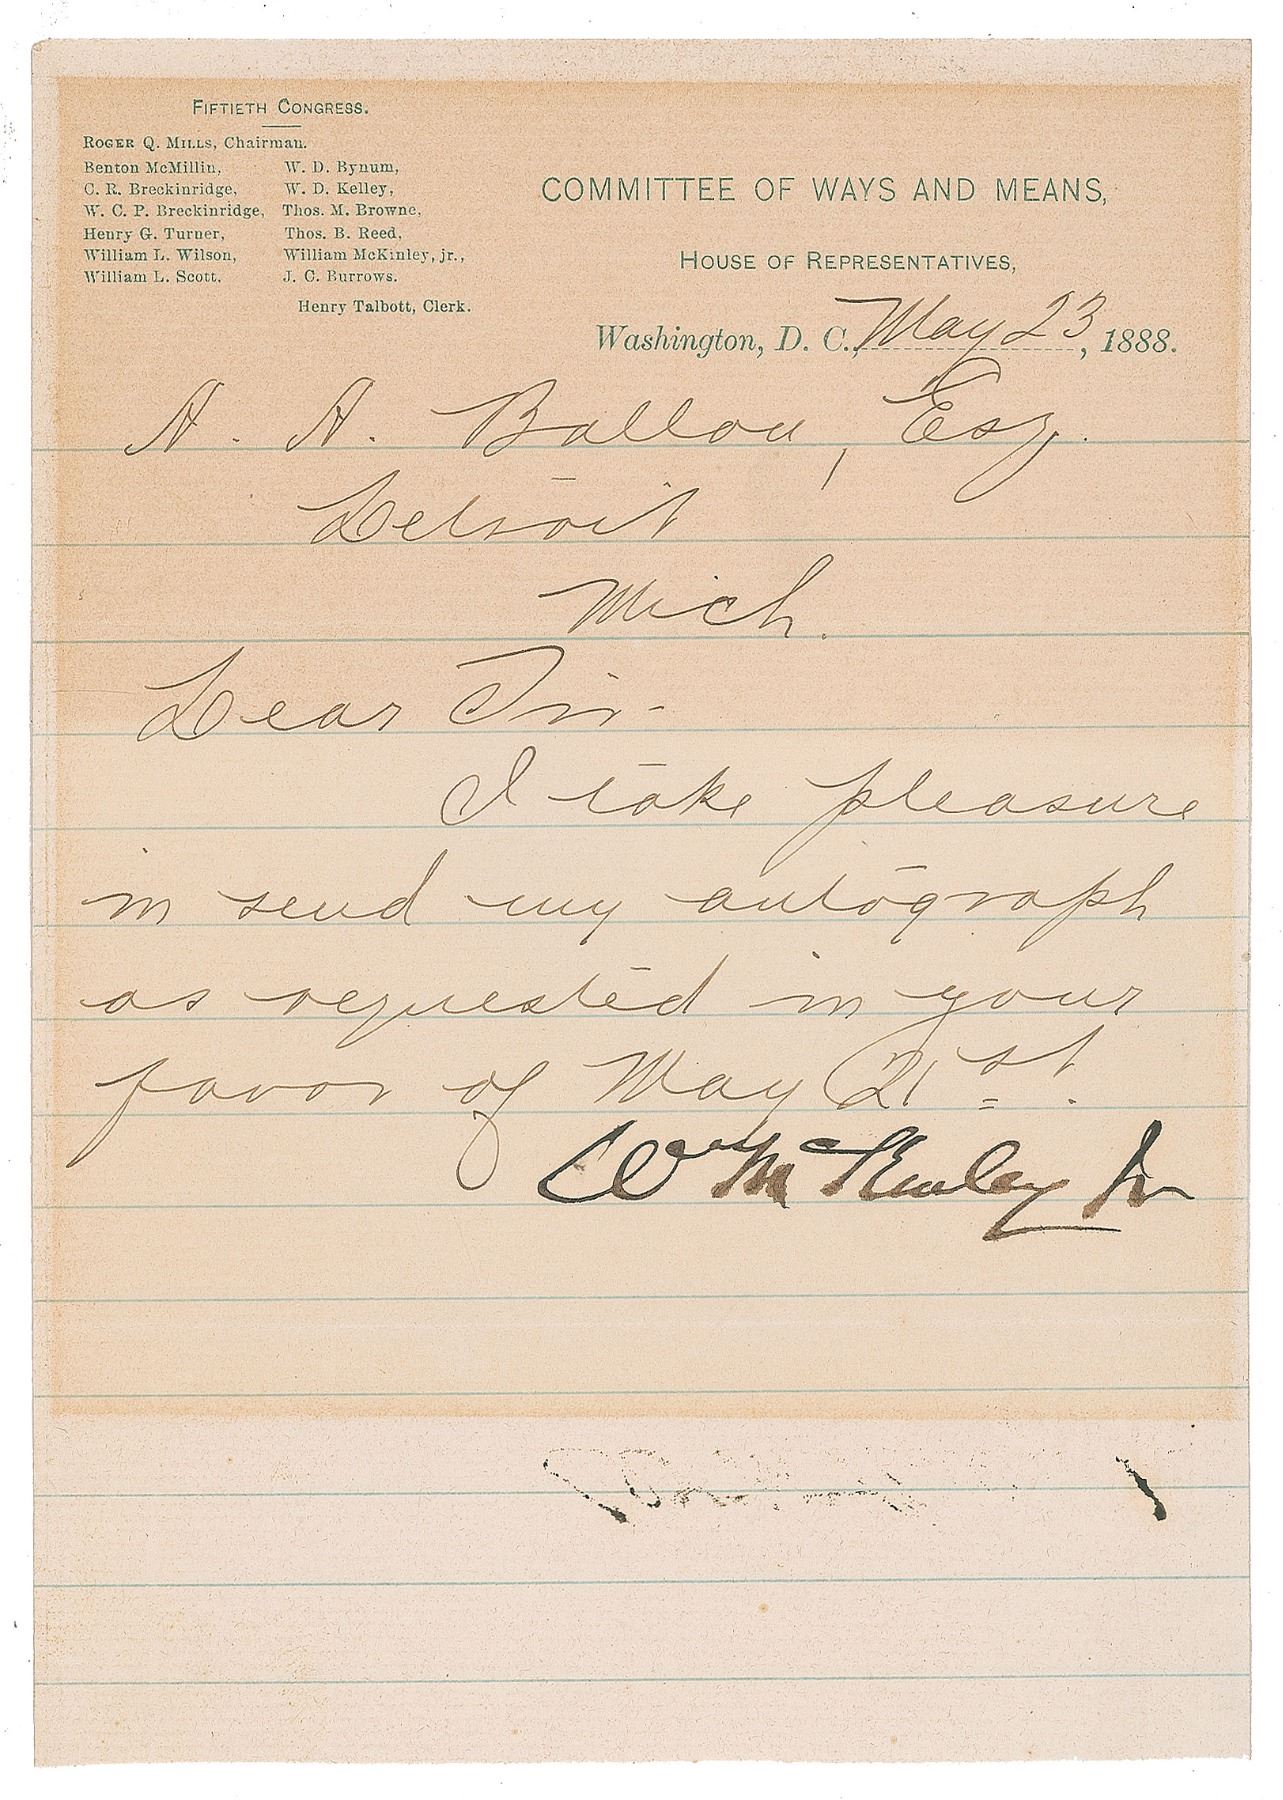 FIFTIETH CONGRESS.
ROGER Q. MILLS, Chairman.
Benton McMillin, W. D. Bynum,
C. R. Breckinridge, W. D. Kelley,
W. C. P. Breckinridge, Thos. M. Browne,
Henry G. Turner, Thos. B. Reed,
William L. Wilson, William McKinley, jr.,
William L. Scott, J. C. Burrows.
Henry Talbott, Clerk.
COMMITTEE OF WAYS AND MEANS,
HOUSE OF REPRESENTATIVES,
Washington, D. C., May 23, 1888.
A. A. Ballou, Esq.
Detroit
Mich.
Dear Sir.
I take pleasure
in send my autograph
as requested in your
favor of May 21st.
Wm McKinley Jr